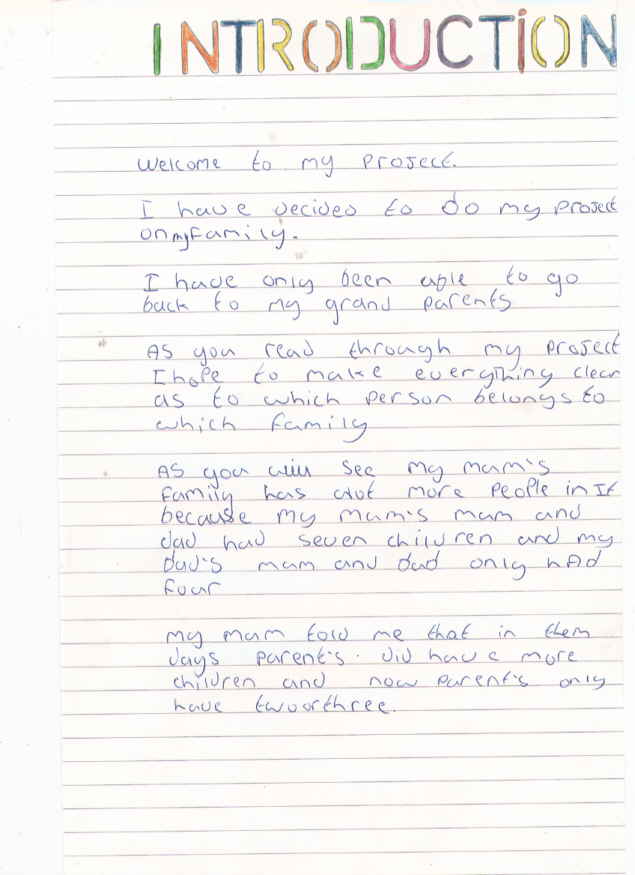 INTRODUCTION
Welcome to my project.
I have decided to do my project
on my family.
I have only been able to go
back to my grand parents
As you read through my project
I hope to make everything clear
as to which person belongs to
which family
As you will see my mam's
family has alot more people in It
because my mam's mam and
dad had seven children and my
dad's mam and dad only hAd
four
my mam told me that in them
days parent's. did have more
children and now parent's only
have twoorthree.